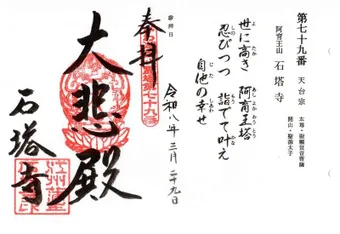 第七十九番 天台宗 本尊・聖観世音菩薩
開山・聖徳太子
阿育王山 石塔寺
世に高き 阿育王塔
忍びつつ 詣でて叶え
自他の幸せ
参拝日
令和八年三月二十九日
奉拝
大悲殿
石塔寺